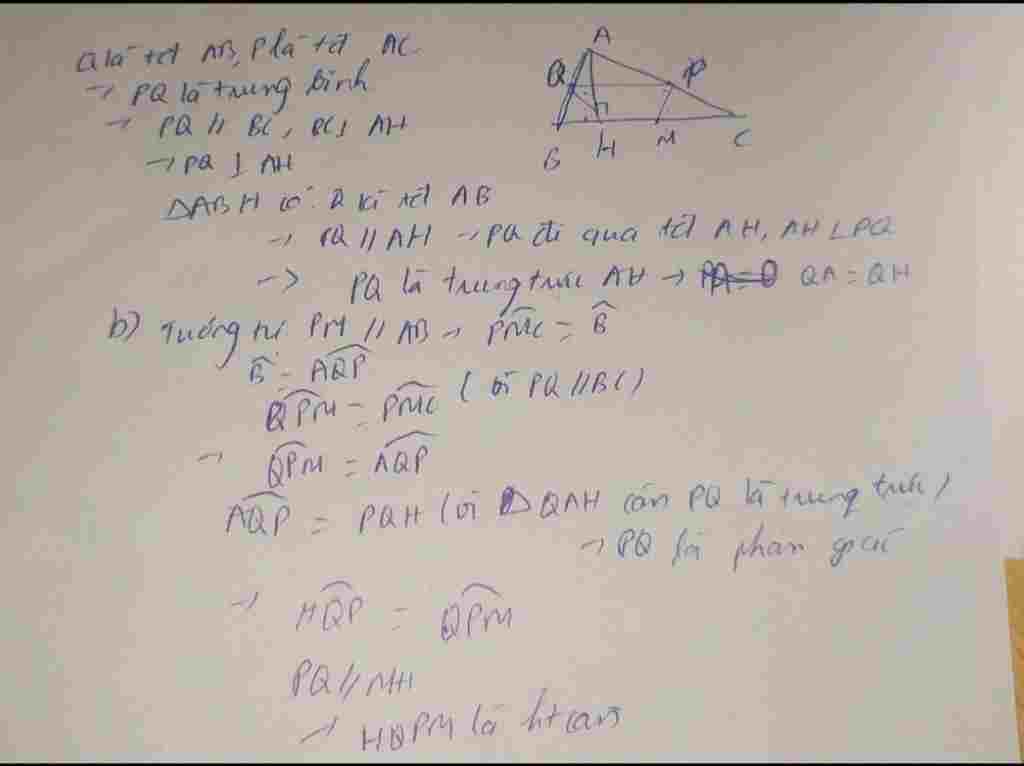 Q là tđ AB, P là tđ AC
→ PQ là trung bình
→ PQ // BC, BC ⊥ AH
→ PQ ⊥ AH
ΔABH có: Q là tđ AB
→ PQ // AH → PQ đi qua tđ AH, AH ⊥ PQ
→ PQ là trung trực AH → QA = QH
b) Tương tự PM // AB → \widehat{PMC} = \widehat{B}
\widehat{B} = \widehat{AQP}
\widehat{QPM} = \widehat{PMC} (vì PQ // BC)
→ \widehat{QPM} = \widehat{AQP}
\widehat{AQP} = PQH (vì ΔQAH cân PQ là trung trực)
→ PQ là phan giác
→ \widehat{HQP} = \widehat{QPM}
PQ // MH
→ HQPM là ht cân
A
Q
P
B
H
M
C